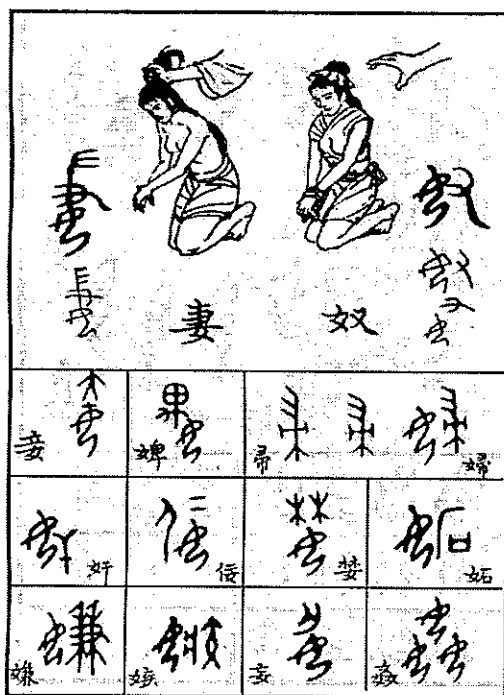 妻 奴
妾 婢 帚 婦
奸 佞 婪 妬
嫌 嫉 妄 姦